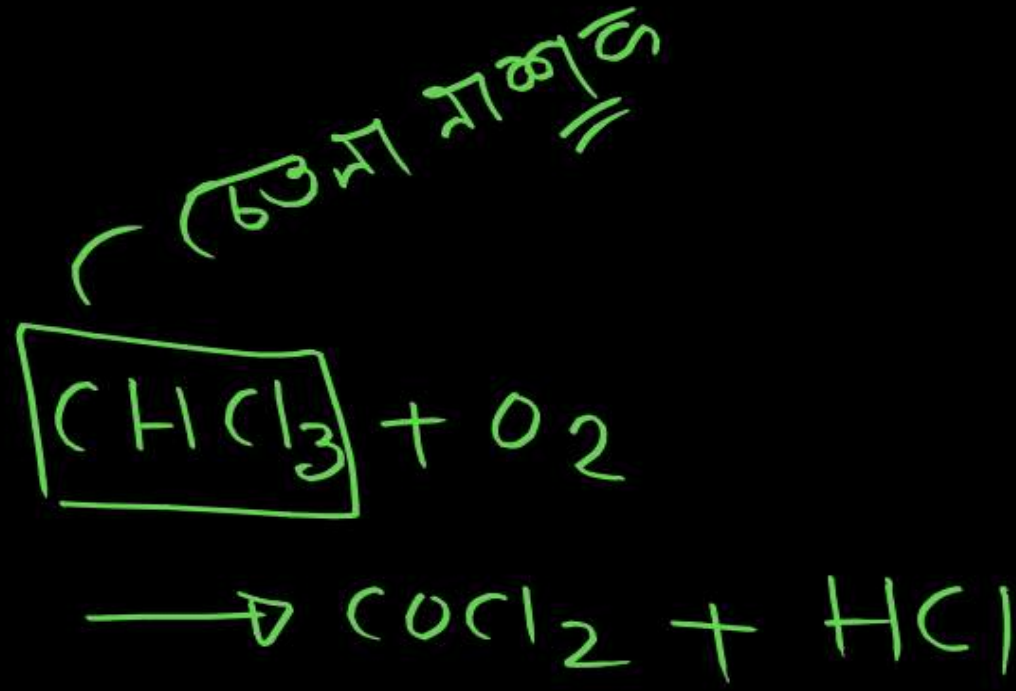 চেতনা নাশক
CHCl₃ + O₂
→ COCl₂ + HCl